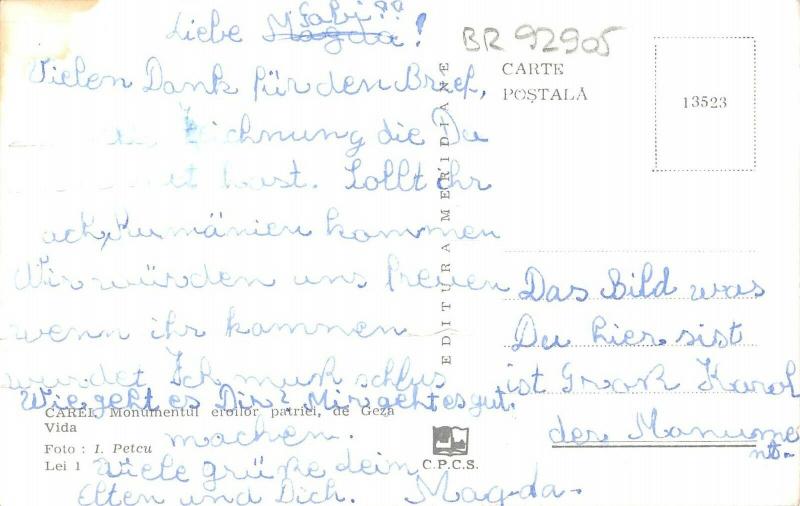 Liebe Magda Gabi?? !
Vielen Dank für den Brief,
Zeichnung die Du
hast. Sollt ihr
Rumänien kommen
Wir würden uns freuen
wenn ihr kommen
wurdet Ich muk schlus
Wie geht es Dir? Mir geht es gut.
machen.
Viele grüße dein
Elten und Dich. Magda-
BR 92905
CARTE
POȘTALĂ
13523
EDITURA MERIDIANE
Das Bild was
Du hier sist
ist Grosk Karol
der Manume
nt-
CAREI. Monumentul eroilor patriei, de Geza
Vida
Foto : I. Petcu
Lei 1
C.P.C.S.